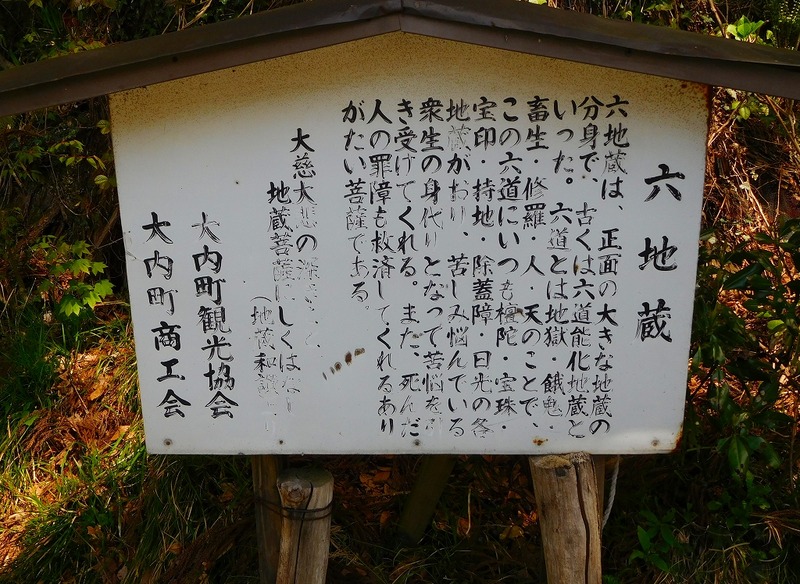 六地蔵
六地蔵は、正面の大きな地蔵の
分身で、古くは六道能化地蔵と
いった。六道とは地獄・餓鬼・
畜生・修羅・人・天のことで、
この六道にいつも檀陀・宝珠・
宝印・持地・除蓋障・日光の各
地蔵がおり、苦しみ悩んでいる
衆生の身代りとなって苦悩を引
き受けてくれる。また、死んだ
人の罪障も救済してくれるあり
がたい菩薩である。
大慈大悲の深
地蔵菩薩にしくはなし
(地蔵和讃
大内町観光協会
大内町商工会